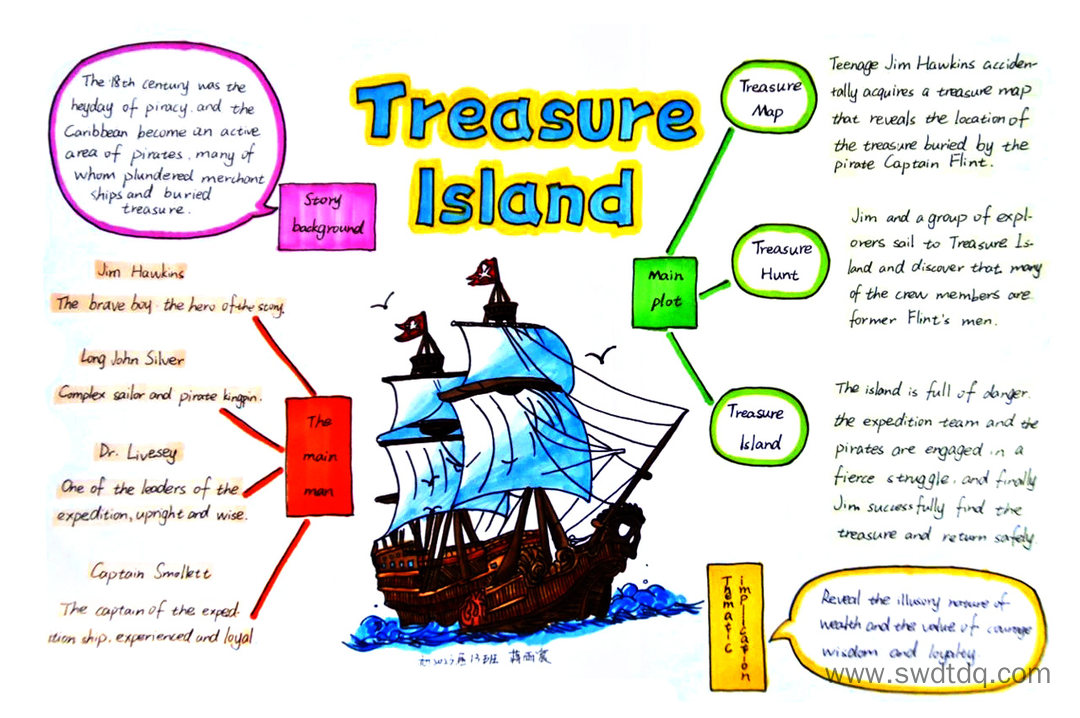 Treasure
Island
The 18th century was the
heyday of piracy. and the
Caribbean become an active
area of pirates. many of
whom plundered merchant
ships and buried
treasure.
Story
background
Jim Hawkins
The brave boy. the hero of the story.
Long John Silver
Complex sailor and pirate kingpin.
Dr. Livesey
One of the leaders of the
expedition, upright and wise.
Captain Smollett
The captain of the exped-
ition ship. experienced and loyal
The
main
man
Main
plot
Treasure
Map
Teenage Jim Hawkins acciden-
tally acquires a treasure map
that reveals the location of
the treasure buried by the
pirate Captain Flint.
Treasure
Hunt
Jim and a group of expl-
overs sail to Treasure Is-
land and discover that many
of the crew members are
former Flint's men.
Treasure
Island
The island is full of danger.
the expedition team and the
pirates are engaged in a
fierce struggle. and finally
Jim successfully find the
treasure and return safely.
Thematic
implication
Reveal the illusory nature of
wealth and the value of courage
wisdom and loyalty.
13班
www.swdtdq.com